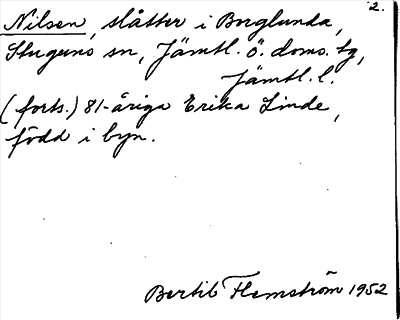 2.
Nilsen, slåtter i Borglunda,
Stuguns sn, Jämtl. ö. doms. tg,
Jämtl. l.
(forts.) 81-åriga Erika Linde,
född i byn.
Bertil Flemström 1952